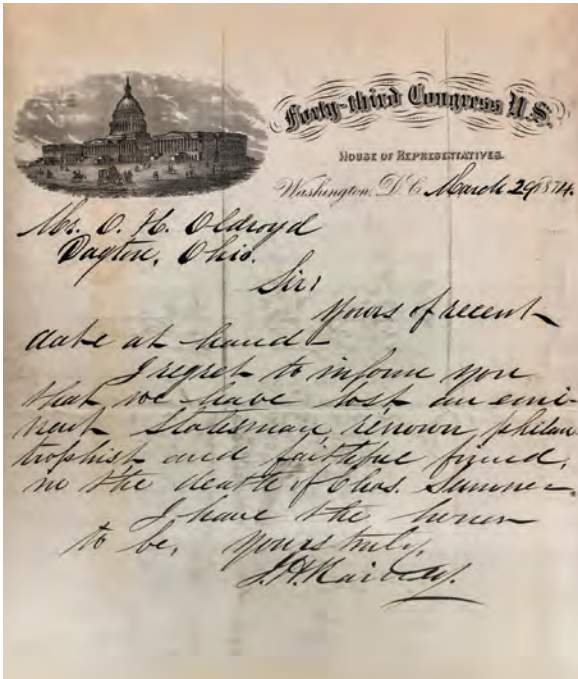 Forty-third Congress U.S.
HOUSE OF REPRESENTATIVES.
Washington, D.C. March 29 1874.
Mr. O. H. Oldroyd
Dayton, Ohio.
Sir:
Yours of recent
date at hand
I regret to inform you
that we have lost an emi-
nent statesman, renown philan
trophist and faithful friend,
in the death of Chas. Sumner.
I have the honor
to be, yours truly,
J. H. Rainey.